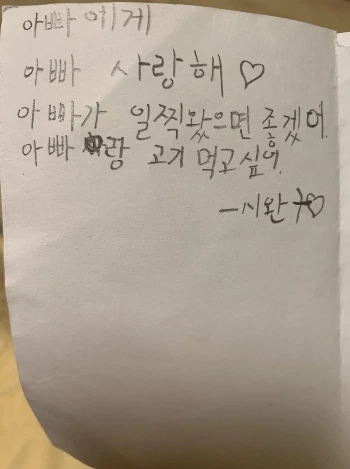 아빠에게
아빠 사랑해 ♡
아빠가 일찍왔으면 좋겠어.
아빠랑 고기 먹고싶어.
-시완